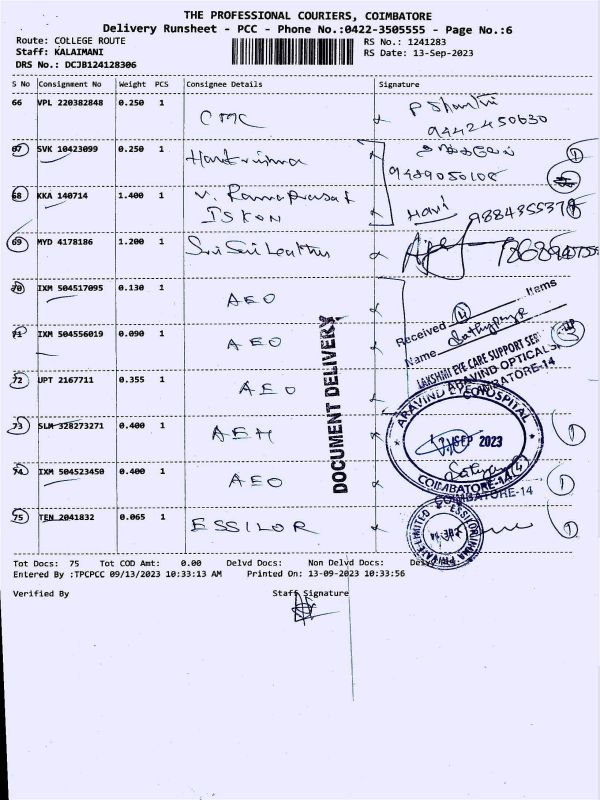 THE PROFESSIONAL COURIERS, COIMBATORE
Delivery Runsheet - PCC - Phone No.:0422-3505555 - Page No.:6
Route: COLLEGE ROUTE
Staff: KALAIMANI
DRS No.: DCJB124128306
RS No.: 1241283
RS Date: 13-Sep-2023
S No Consignment No Weight PCS Consignee Details Signature
66 VPL 220382848 0.250 1 CMC
9442450630
67 SVK 10423099 0.250 1
9489050108
68 KKA 140714 1.400 1 V. Ramaprasat
ISKON Hari
69 MYD 4178186 1.200 1 Sri Sri Leather
70 IXM 504517095 0.130 1 AEO
Received 4 Items
Name Sathyapriya
71 IXM 504556019 0.090 1 AEO
LAKSHMI EYE CARE SUPPORT
ARAVIND OPTICALS
COIMBATORE-14
72 UPT 2167711 0.355 1 AEO
DOCUMENT DELIVERY
ARAVIND EYE HOSPITAL
73 SLM 328273271 0.400 1 AEH
SEP 2023
74 IXM 504523450 0.400 1 AEO
COIMBATORE-14
COIMBATORE-14
75 TEN 2041832 0.065 1 ESSILOR
PRIVATE LIMITED
Tot Docs: 75 Tot COD Amt: 0.00 Delvd Docs: Non Delvd Docs:
Entered By :TPCPCC 09/13/2023 10:33:13 AM Printed On: 13-09-2023 10:33:56
Verified By Staff Signature